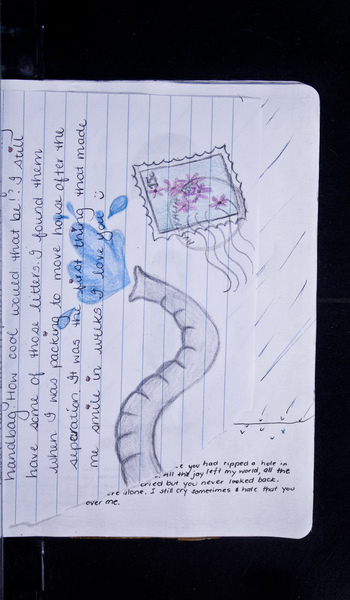 handbag! How cool would that be!". I still
have some of those letters. I found them
when I was packing to move house after the
superation. It was the first thing that made
me smile in weeks. I love you
you had ripped a hole in
all the joy left my world, all the
cried but you never looked back.
alone. I still cry sometimes & hate that you
over me.